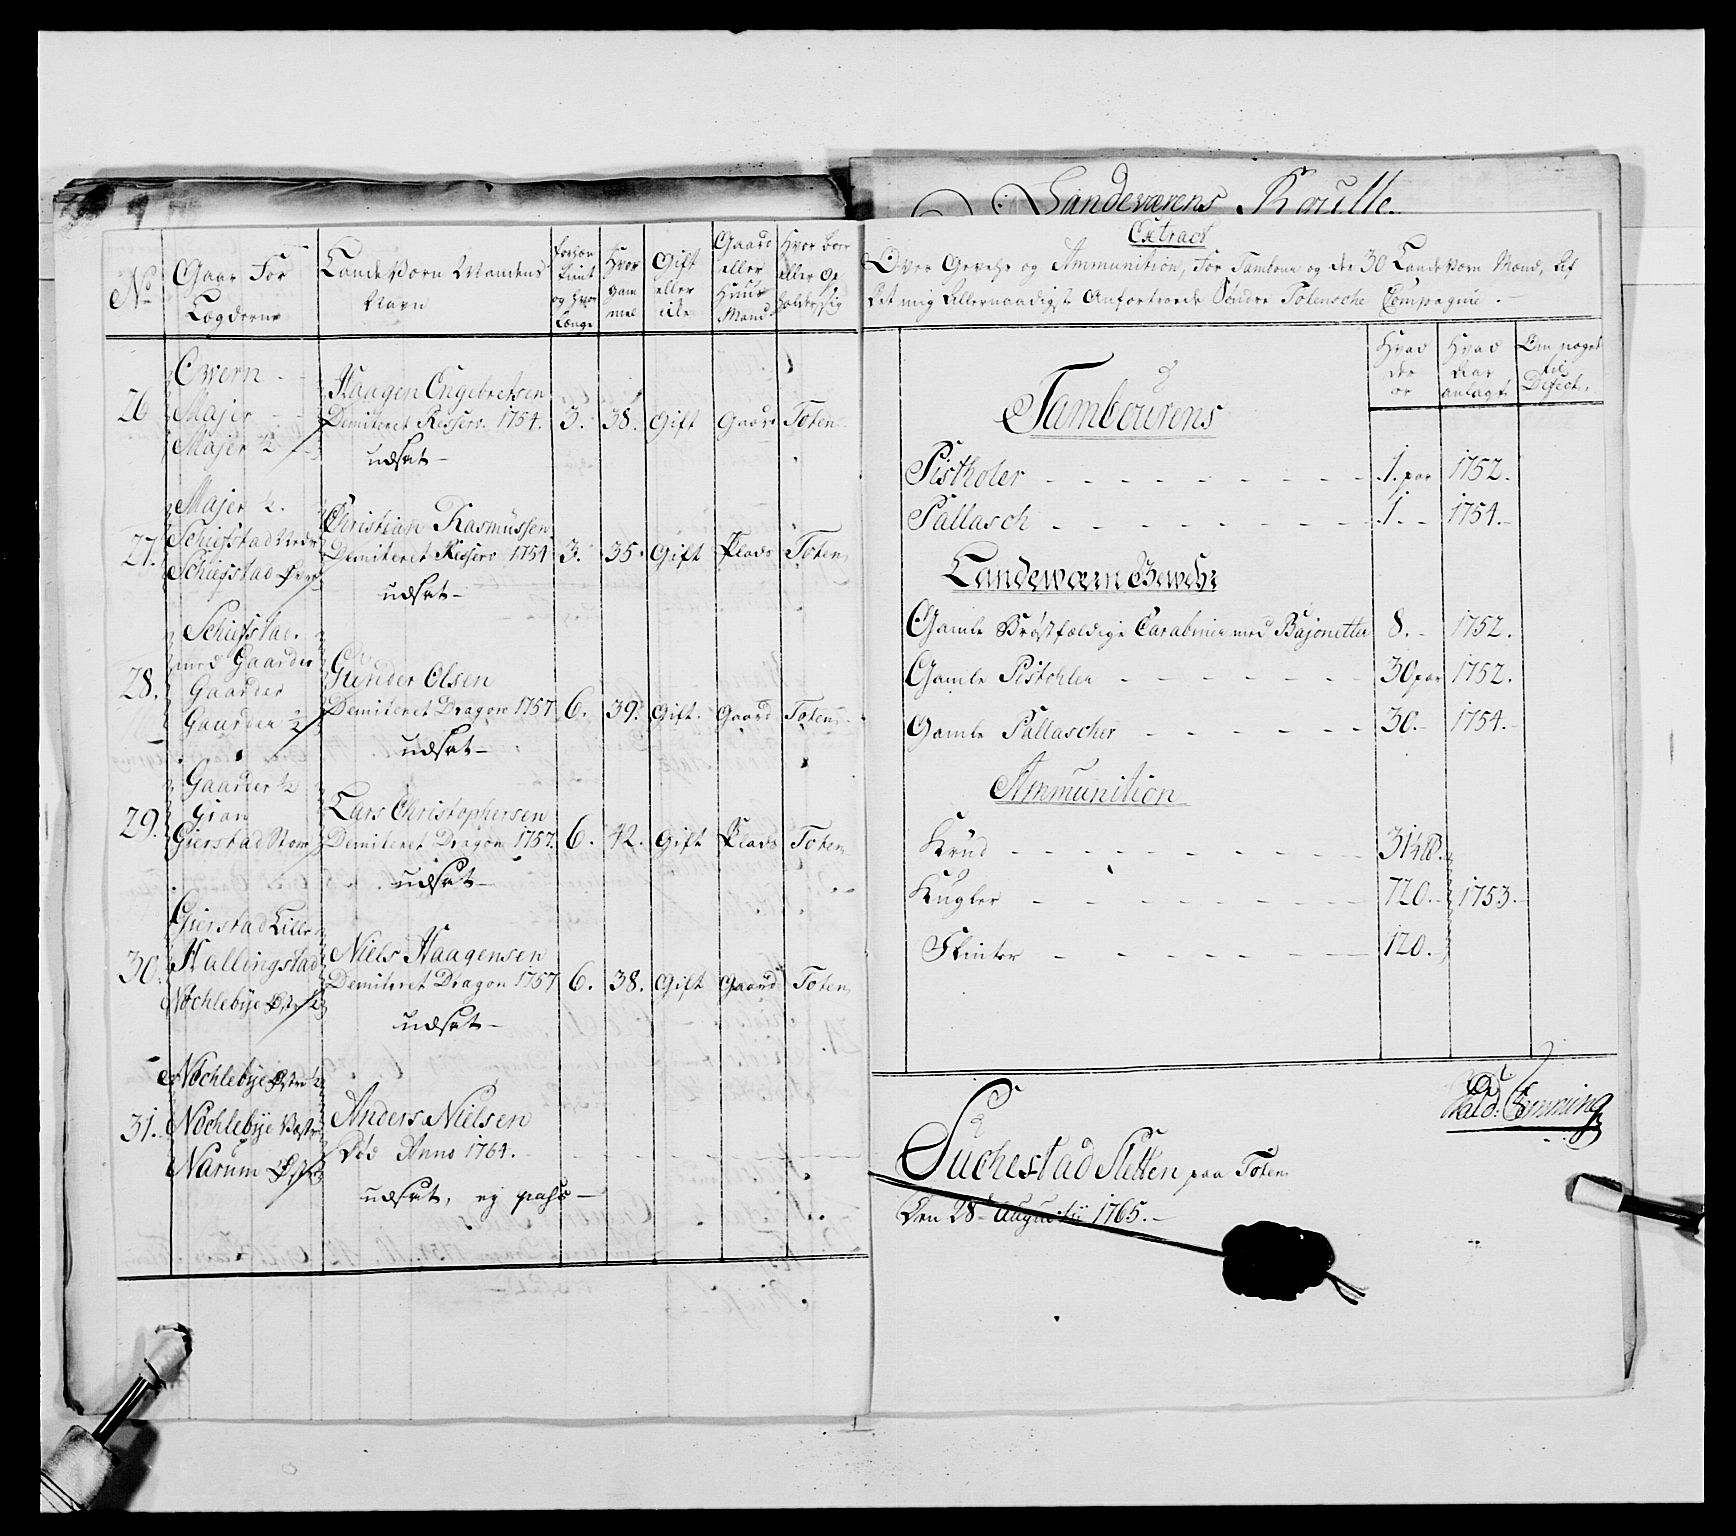 No
Gaar For
Lægderne
Lande Værn Mandens
Navn
og hvor
Længe
Hvor
gam
mel
Gift
eller
Gaard
eller
Huus
Mand
Hvor boer
eller op
holder sig
26
Owern
Majer
Majer ½
Haagen Engebretsen
Demiteret Reserv. 1754.
udsat
3. 38. Gift Gaard Toten
27.
Majer ½.
Schiefstad Nedre
Schiefstad
Christian Rasmussen
Demiteret Reserv 1754
udsat
3. 35. Gift Plads Toten
28.
Schiefstad.
med Gaarder
Gaarder
Gaarder ½
Gunder Olsen
Demiteret Dragon 1757
udsat
6. 39. Gift. Gaard Toten
29.
Gaarder ½
Gierstad Store
Lars Christophersen
Demiteret Dragon 1757.
udsat
6. 42. Gift Plads Toten
30.
Gierstad Lille
Hallingstad
Nøchlebye Østre ½
Niels Haagensen
Demiteret Dragon 1757
udsat
6. 38. Gift Gaard Toten
31.
Nøchlebye Østre ½
Nøchlebye Vestre
Narum
Anders Nielsen
Død Anno 1764.
udsat, ej passe
Landeværens Roulle
Extract
Over Gevehr og Ammunition, for Tambour og de 30 Landeværn Mænd, ved
det mig Allernaadigst Anfortroede Søndre Totensche Compagnie.
Hvad
der
er
Hvad
Aar
anlagt
Om noget
til
Defect.
Tambourens
Pistholer 1. par 1752.
Pallasch 1 1754.
Landeværn Gevehr
Gamle Brøstfældige Carabiner med Bajonetter 8. 1752.
Gamle Pistohler 30 par 1752.
Gamle Pallascher 30. 1754.
Ammunition
Krud
Kugler 720. 1753.
Flinter 120.
Suchestad Sletten paa Toten
Den 28 Augustii 1765.